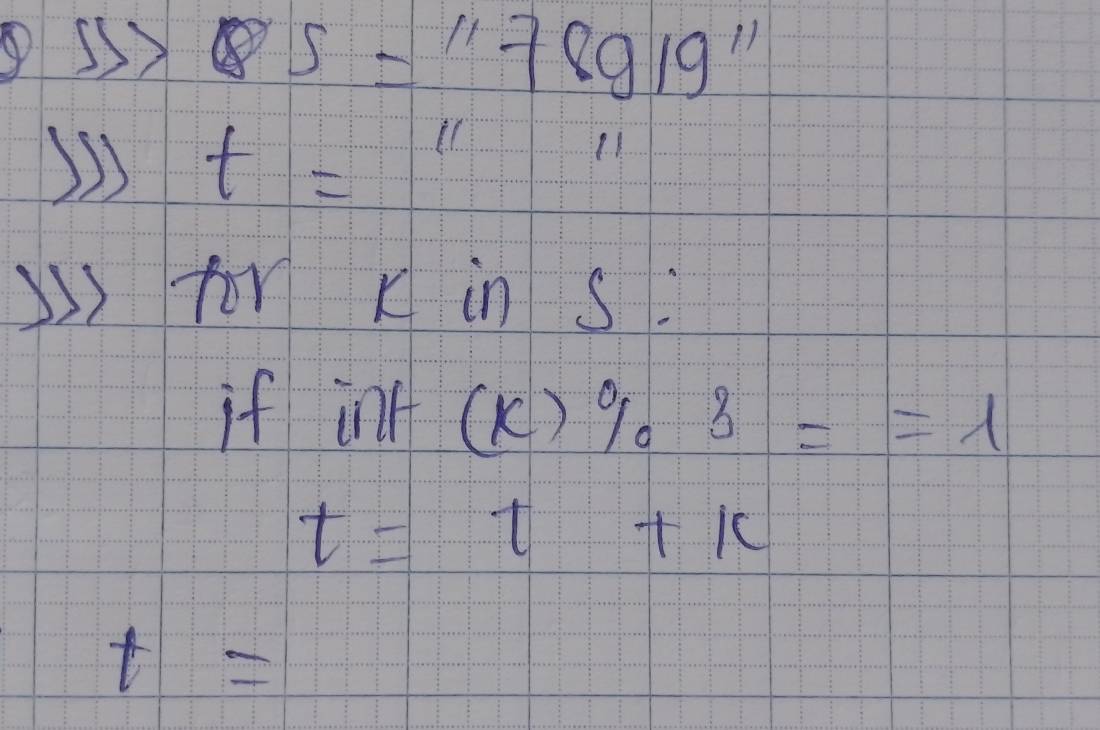 >>> s = "78919"
>>> t = " "
>>> for k in s:
if int (k) % 3 = = 1
t = t + k
t =